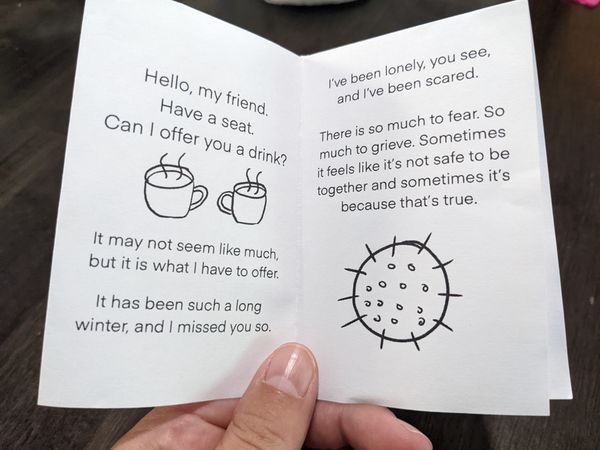 Hello, my friend.
Have a seat.
Can I offer you a drink?
It may not seem like much,
but it is what I have to offer.
It has been such a long
winter, and I missed you so.
I've been lonely, you see,
and I've been scared.
There is so much to fear. So
much to grieve. Sometimes
it feels like it's not safe to be
together and sometimes it's
because that's true.